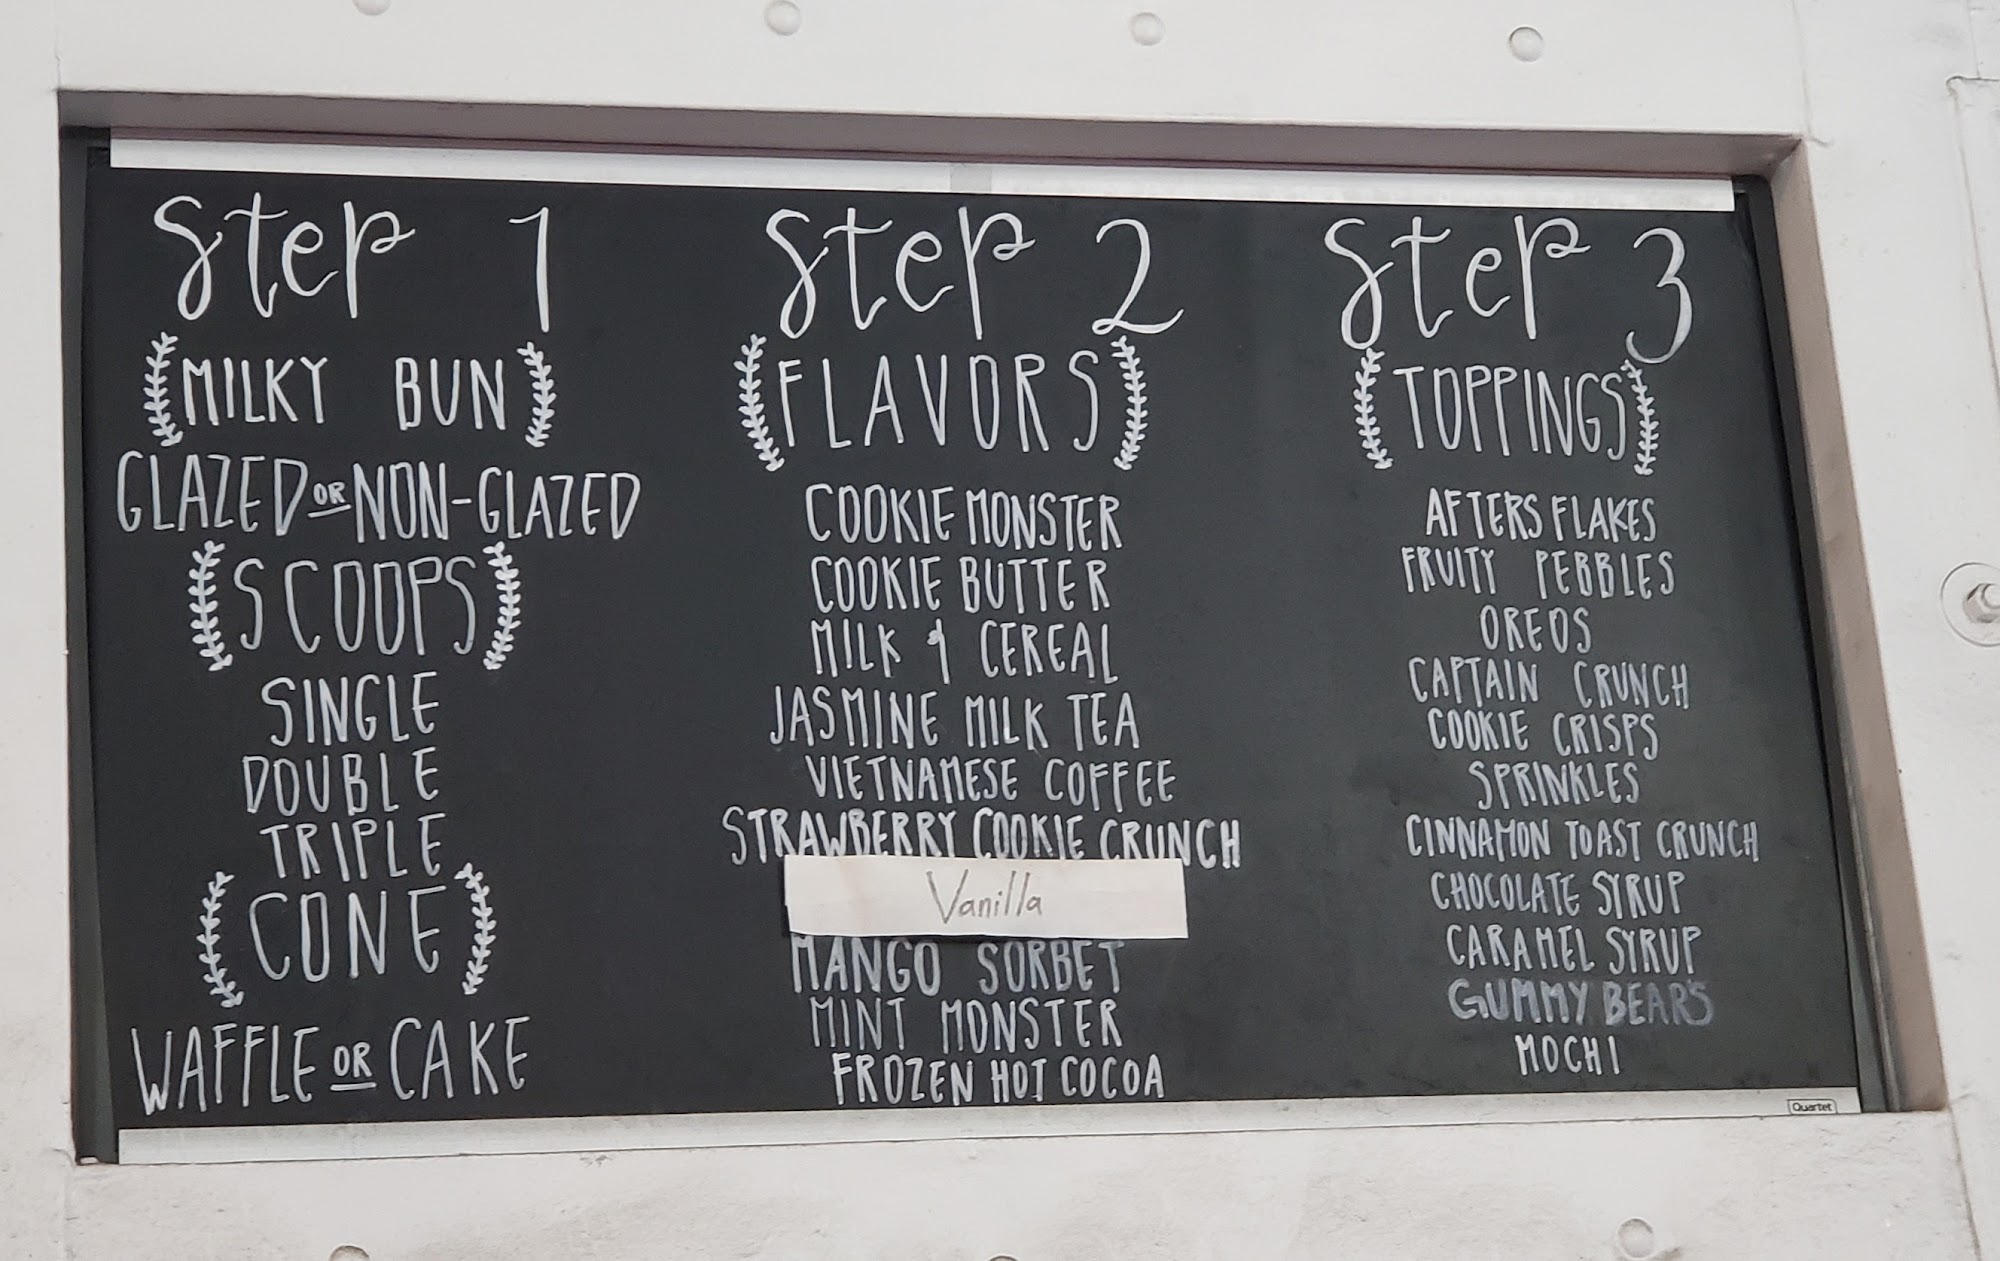 Step 1
MILKY BUN
GLAZED OR NON-GLAZED
SCOOPS
SINGLE
DOUBLE
TRIPLE
CONE
WAFFLE OR CAKE
Step 2
FLAVORS
COOKIE MONSTER
COOKIE BUTTER
MILK & CEREAL
JASMINE MILK TEA
VIETNAMESE COFFEE
STRAWBERRY COOKIE CRUNCH
Vanilla
MANGO SORBET
MINT MONSTER
FROZEN HOT COCOA
Step 3
TOPPINGS
AFTERS FLAKES
FRUITY PEBBLES
OREOS
CAPTAIN CRUNCH
COOKIE CRISPS
SPRINKLES
CINNAMON TOAST CRUNCH
CHOCOLATE SYRUP
CARAMEL SYRUP
GUMMY BEARS
MOCHI
Quartet